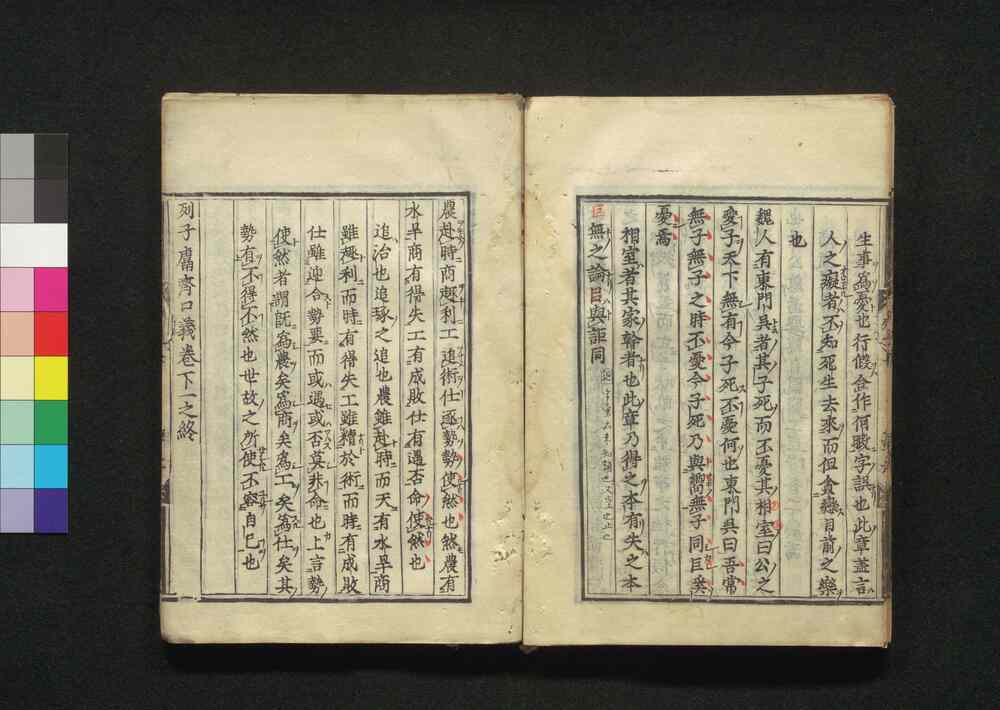 生事爲憂也行假金作佰敗字誤也此章蓋言
人之癡者不知死生去來而但貪戀目前之樂
也
魏人有東門吳者其子死而不憂其相室曰公之
愛子天下無有今子死不憂何也東門吳曰吾常
無子無子之時不憂今子死乃與嚮無子同臣奚
憂焉
相室者其家幹者也此章乃得之本有失之本
無之論臣與詎同
農赴時商趣利工追術仕逐勢勢使然也然農有
水旱商有得失工有成敗仕有遇否命使然也
追治也追琢之追也農雖赴時而天有水旱商
雖趣利而時有得失工雖精於術而時有成敗
仕雖迎合勢要而或遇或否莫非命也上言勢
使然者謂旣爲農矣爲商矣爲工矣爲仕矣其
勢有不得不然也世故之所使不容自已也
列子鬳齋口義卷下一之終